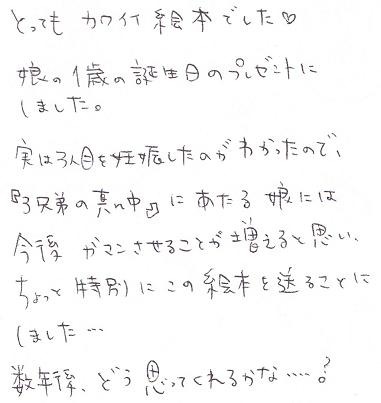 とっても カワイイ 絵本でした♡
娘の1歳の誕生日のプレゼントに
しました。
実は3人目を妊娠したのがわかったので、
『3兄弟の真ん中』にあたる娘には
今後 ガマンさせることが増えると思い、
ちょっと特別にこの絵本を送ることに
しました…
数年後、どう思ってくれるかな……?